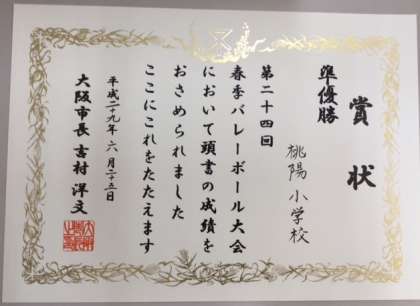 賞状
準優勝
桃陽小学校
第二十四回
春季バレーボール大会
において頭書の成績を
おさめられました
ここにこれをたたえます
平成二十九年六月二十五日
大阪市長 吉村洋文